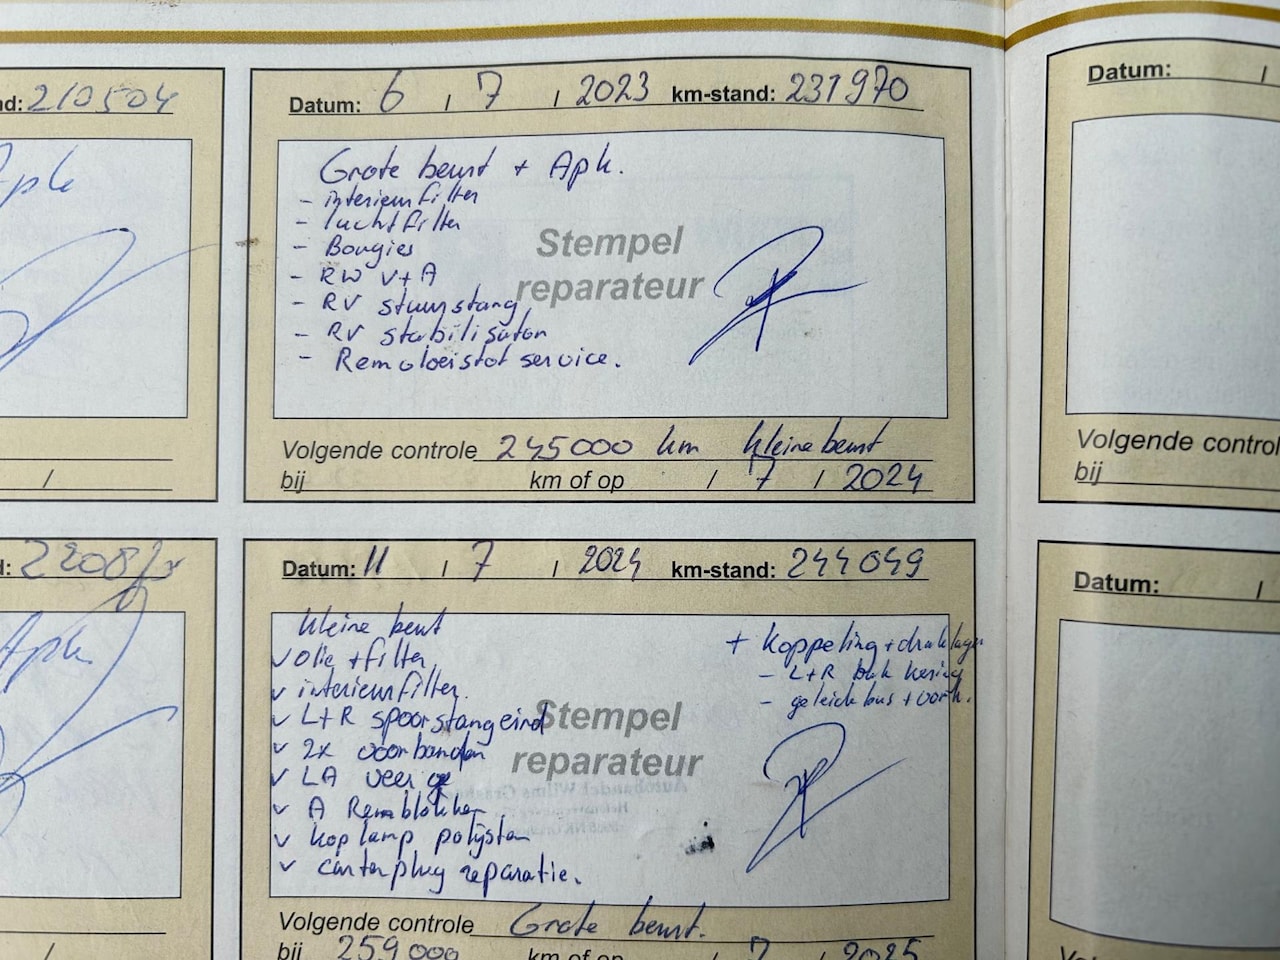 nd: 210504
Apk
Datum: 6 / 7 / 2023 km-stand: 231970
Grote beurt + Apk.
- interieurfilter
- luchtfilter
- Bougies
- RW V+A
- RV stuurstang
- RV stabilisator
- Remvloeistof service.
Stempel
reparateur
Volgende controle 245000 km kleine beurt
bij km of op / 7 / 2024
/
Datum: /
Volgende controle
bij
d:
Apk
Datum: 11 / 7 / 2024 km-stand: 244049
kleine beurt
v olie + filter
v interieurfilter.
v L+R spoorstangeind
v 2x voorbanden
v LA veer
v A Remblokken
v koplamp polijsten
v carterplug reparatie.
+ koppeling + druklager
- L+R keering
- geleidebus + vork.
Stempel
reparateur
Volgende controle Grote beurt.
bij 259000 km of op / 7 / 2025
/
Datum: /